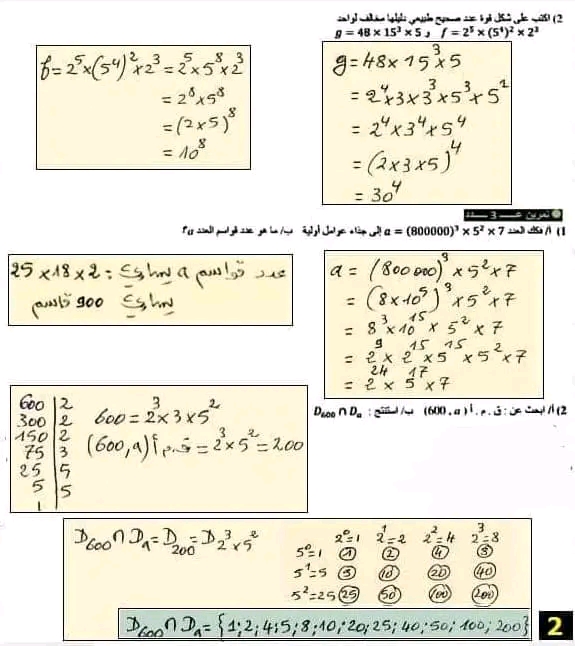 2) اكتب على شكل قوة عدد صحيح طبيعي دليلها مخالف لواحد
f = 2⁵ × (5⁴)² × 2³ و g = 48 × 15³ × 5
f = 2⁵×(5⁴)²×2³ = 2⁵×5⁸×2³
= 2⁸×5⁸
= (2×5)⁸
= 10⁸
g = 48×15³×5
= 2⁴×3×3³×5³×5¹
= 2⁴×3⁴×5⁴
= (2×3×5)⁴
= 30⁴
تمرين عـــ 3 ـــدد
1) أ/ فكك العدد a = (800000)³ × 5² × 7 إلى جذاء عوامل أولية ب/ ما هو عدد قواسم العدد a؟
عدد قواسم a يساوي : 25×18×2
يساوي 900 قاسم
a = (800 000)³ × 5² × 7
= (8×10⁵)³ × 5² × 7
= 8³×10¹⁵ × 5² × 7
= 2⁹ × 2¹⁵ × 5¹⁵ × 5² × 7
= 2²⁴ × 5¹⁷ × 7
2) أ/ ابحث عن : ق . م . أ (600 , a) ب/ استنتج : D₆₀₀ ∩ Dₐ
600 | 2
300 | 2
150 | 2
75 | 3
25 | 5
5 | 5
1 |
600 = 2³×3×5²
ق.م.أ (600,a) = 2³×5² = 200
D₆₀₀ ∩ Dₐ = D₂₀₀ = D₂³×₅²
2⁰=1 2¹=2 2²=4 2³=8
5⁰=1 1 2 4 8
5¹=5 5 10 20 40
5²=25 25 50 100 200
D₆₀₀ ∩ Dₐ = {1;2;4;5;8;10;20;25;40;50;100;200}
2